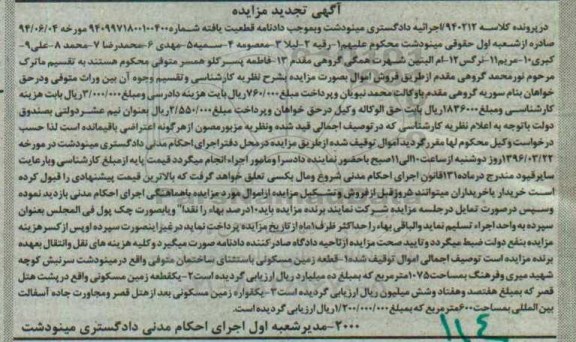 آگهی تجدید مزایده
در پرونده کلاسه ۹۴۰۲۱۲/اجرائیه دادگستری مینودشت وبموجب دادنامه قطعیت یافته شماره ۹۴۰۹۹۷۱۸۰۰۱۰۰۴۰۰ مورخه ۹۴/۰۶/۰۴
صادره ازشعبه اول حقوقی مینودشت محکوم علیهم۱-رقیه ۲-لیلا ۳-معصومه ۴-سمیه۵-مهدی ۶-محمدرضا ۷-محمد ۸-علی۹-
کبری۱۰-مریم۱۱-نرگس۱۲-ام البنین شهرت همگی گروهی مقدم ۱۳-فاطمه پسرکلو همسر متوفی محکوم هستند به تقسیم ماترک
مرحوم نورمحمد گروهی مقدم ازطریق فروش اموال بصورت مزایده بشرح نظریه کارشناسی و تقسیم وجوه آن بین وراث متوفی ودرحق
خواهان بنام سوریه گروهی مقدم باوکالت محمد نبویان وپرداخت مبلغ ۷۶۰/۰۰۰ریال بابت هزینه دادرسی ومبلغ ۳/۰۰۰/۰۰۰ریال بابت هزینه
کارشناسی ومبلغ ۱۸۳۶۰۰۰ریال بابت حق الوکاله وکیل درحق خواهان وپرداخت مبلغ ۲/۵۵۰/۰۰۰ریال بعنوان نیم عشر دولتی بصندوق
دولت باتوجه به اعلام نظریه کارشناسی که درتوصیف اجمالی قید شده ونظریه مزبورمصون ازهرگونه اعتراضی باقیمانده است لذا حسب
درخواست وکیل محکوم لها مقررگردید اموال توقیف شده ازطریق مزایده درمحل دفتراجرای احکام مدنی دادگستری مینودشت در مورخه
۱۳۹۶/۰۲/۲۲روز دوشنبه ازساعت ۱۰الی۱۱صبح باحضور نماینده دادسرا ومامور اجراء انجام میگردد قیمت پایه ازمبلغ کارشناسی وبارعایت
سایرقیود مندرج درماده۱۳۱قانون اجرای احکام مدنی شروع ومال بکسی تعلق خواهد گرفت که بالاترین قیمت پیشنهادی را قبول کرده
است خریدار یاخریداران میتوانند ۵روزقبل ازفروش وتشکیل مزایده ازاموال مورد مزایده باهماهنگی اجرای احکام مدنی بازدید نموده
وسپس درصورت تمایل درجلسه مزایده شرکت نمایند برنده مزایده باید۱۰درصد بهاء را نقدا" ویابصورت چک پول فی المجلس بعنوان
سپرده به واحد اجراء تسلیم نماید والباقی بهاء را حداکثر ظرف۱ماه ازتاریخ مزایده پرداخت نماید درغیراینصورت سپرده اوپس از کسرهزینه
مزایده بنفع دولت ضبط میگردد وتایید صحت مزایده ازناحیه دادگاه صادرکننده دادنامه صورت میگیر دوکلیه هزینه های نقل وانتقال بعهده
برنده مزایده است توصیف اجمالی اموال توقیف شده۱-قطعه زمین مسکونی باستثنای ساختمان متوفی واقع در مینودشت سرنبش کوچه
شهید میری وفرهنگ بمساحت۱۰۷۵مترمربع که بمبلغ ده میلیارد ریال ارزیابی گردیده است۲-یکقطعه زمین مسکونی واقع درپشت هتل
قصر که بمبلغ هفتصد وهفتاد وشش میلیون ریال ارزیابی گردیده است۳-یکقواره زمین مسکونی بعد ازهتل قصر ومجاورت جاده آسفالت
بین المللی بمساحت۶۰۰مترمربع که بمبلغ ۱/۲۰۰/۰۰۰/۰۰۰ریال ارزیابی گردیده است.
۲۰۰۰-مدیرشعبه اول اجرای احکام مدنی دادگستری مینودشت
۱۱۴